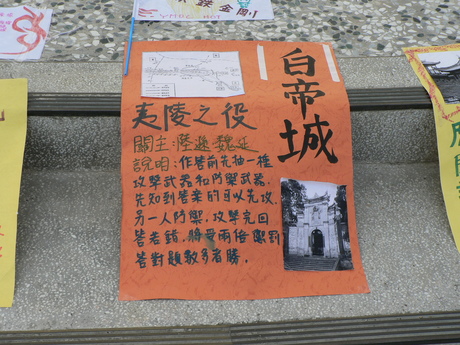 白帝城
夷陵之役
關主:陸遜 魏延
說明:作答前先抽一種
攻擊武器和防禦武器.
先知到答案的可以先攻.
另一人防禦,攻擊完回
答若錯,將受兩倍懲罰
答對題數多者勝.